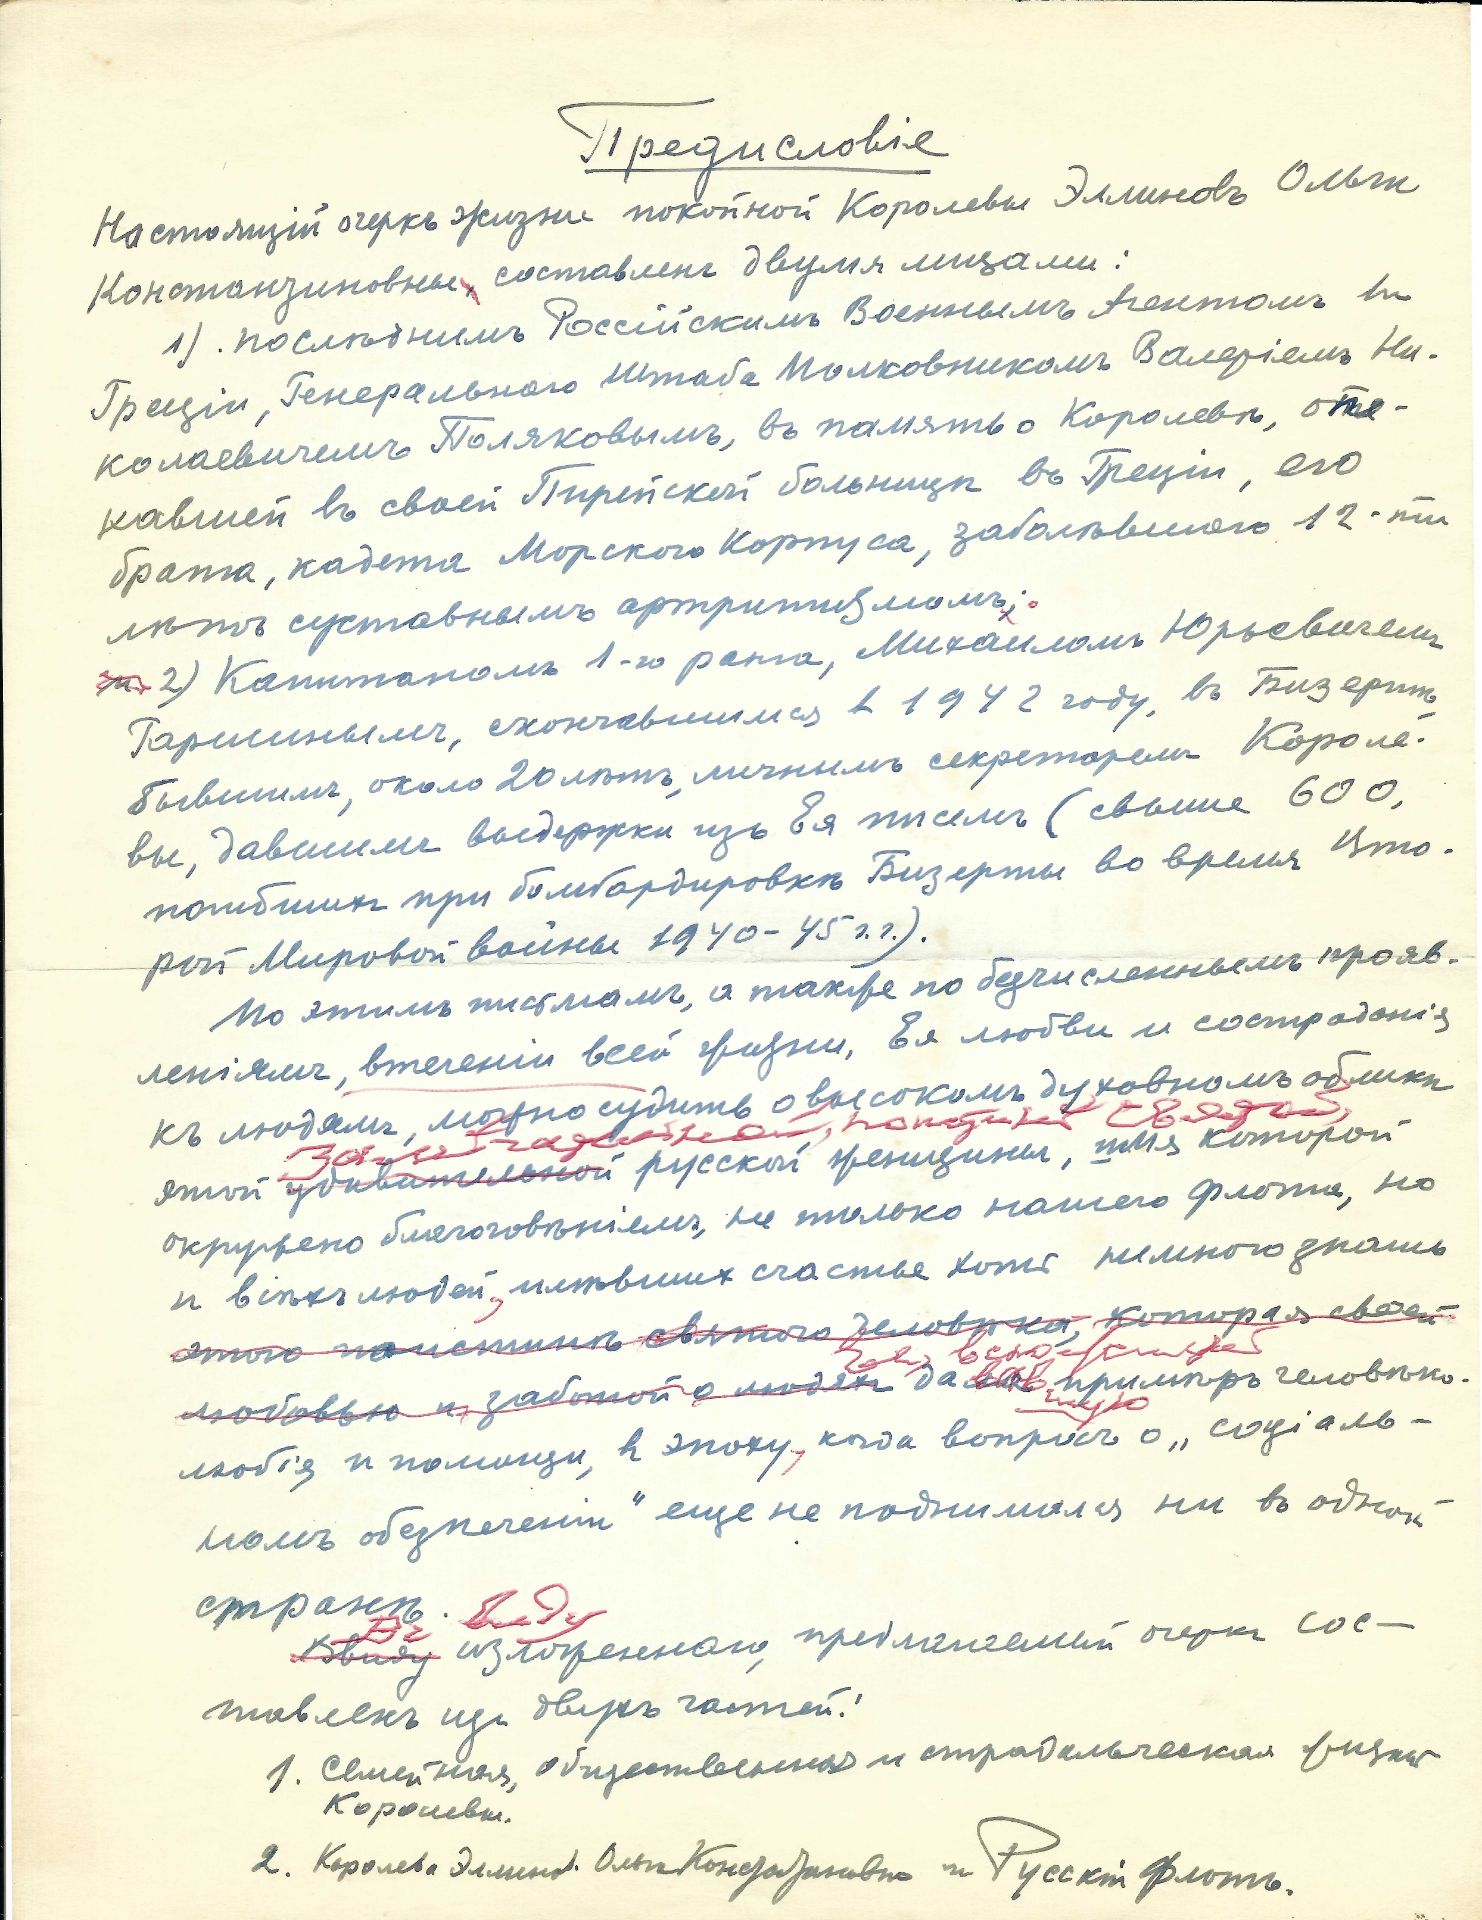 Предисловіе
Настоящій очеркъ жизни покойной Королевы Эллиновъ Ольги
Константиновны, составленъ двумя лицами:
1). послѣднимъ Россійскимъ Военнымъ Агентомъ въ
Греціи, Генеральнаго Штаба Полковникомъ Валеріемъ Ни-
колаевичемъ Поляковымъ, въ память о Королевѣ, опе-
кавшей въ своей Пирейской больницѣ въ Греціи, его
брата, кадета Морского Корпуса, заболѣвшаго 12-ти
лѣтъ суставнымъ артритизмомъ;
2) Капитаномъ 1-го ранга, Михаиломъ Юрьевичемъ
Гаршинымъ, скончавшимся въ 1942 году, въ Бизертѣ
бывшимъ, около 20 лѣтъ, личнымъ секретаремъ Короле-
вы, давшимъ выдержки изъ Ея писемъ (свыше 600,
погибшихъ при бомбардировкѣ Бизерты во время Вто-
рой Мировой войны 1940-45 г.г.).
По этимъ письмамъ, а также по безчисленнымъ прояв-
леніямъ, втеченіи всей жизни, Ея любви и состраданія
къ людямъ, можно судить о высокомъ духовномъ обликѣ
святой
этой удивительной русской женщины, имя которой
окружено благоговѣніемъ, не только нашего флота, но
и всѣхъ людей, имѣвшихъ счастье хотя немного знать
этого поистинѣ святого человѣка, которая своей
любовью и заботой о людяхъ дала примѣръ человѣко-
любія и помощи, въ эпоху, когда вопросъ о „соціаль-
номъ обезпеченіи" еще не поднимался ни въ одной
странѣ.
Въ виду
Ввиду изложеннаго, предлагаемый очеркъ сос-
тавленъ изъ двухъ частей:
1. Семейная, общественная и страдальческая жизнь
Королевы.
2. Королева Эллиновъ Ольга Константиновна и Русскій Флотъ.